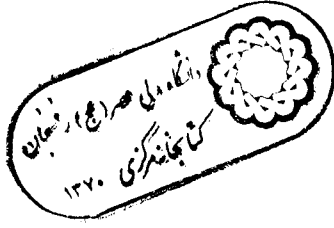 دانشگاه ولی عصر (عج) رفسنجان
کتابخانه مرکزی
۱۳۷۰